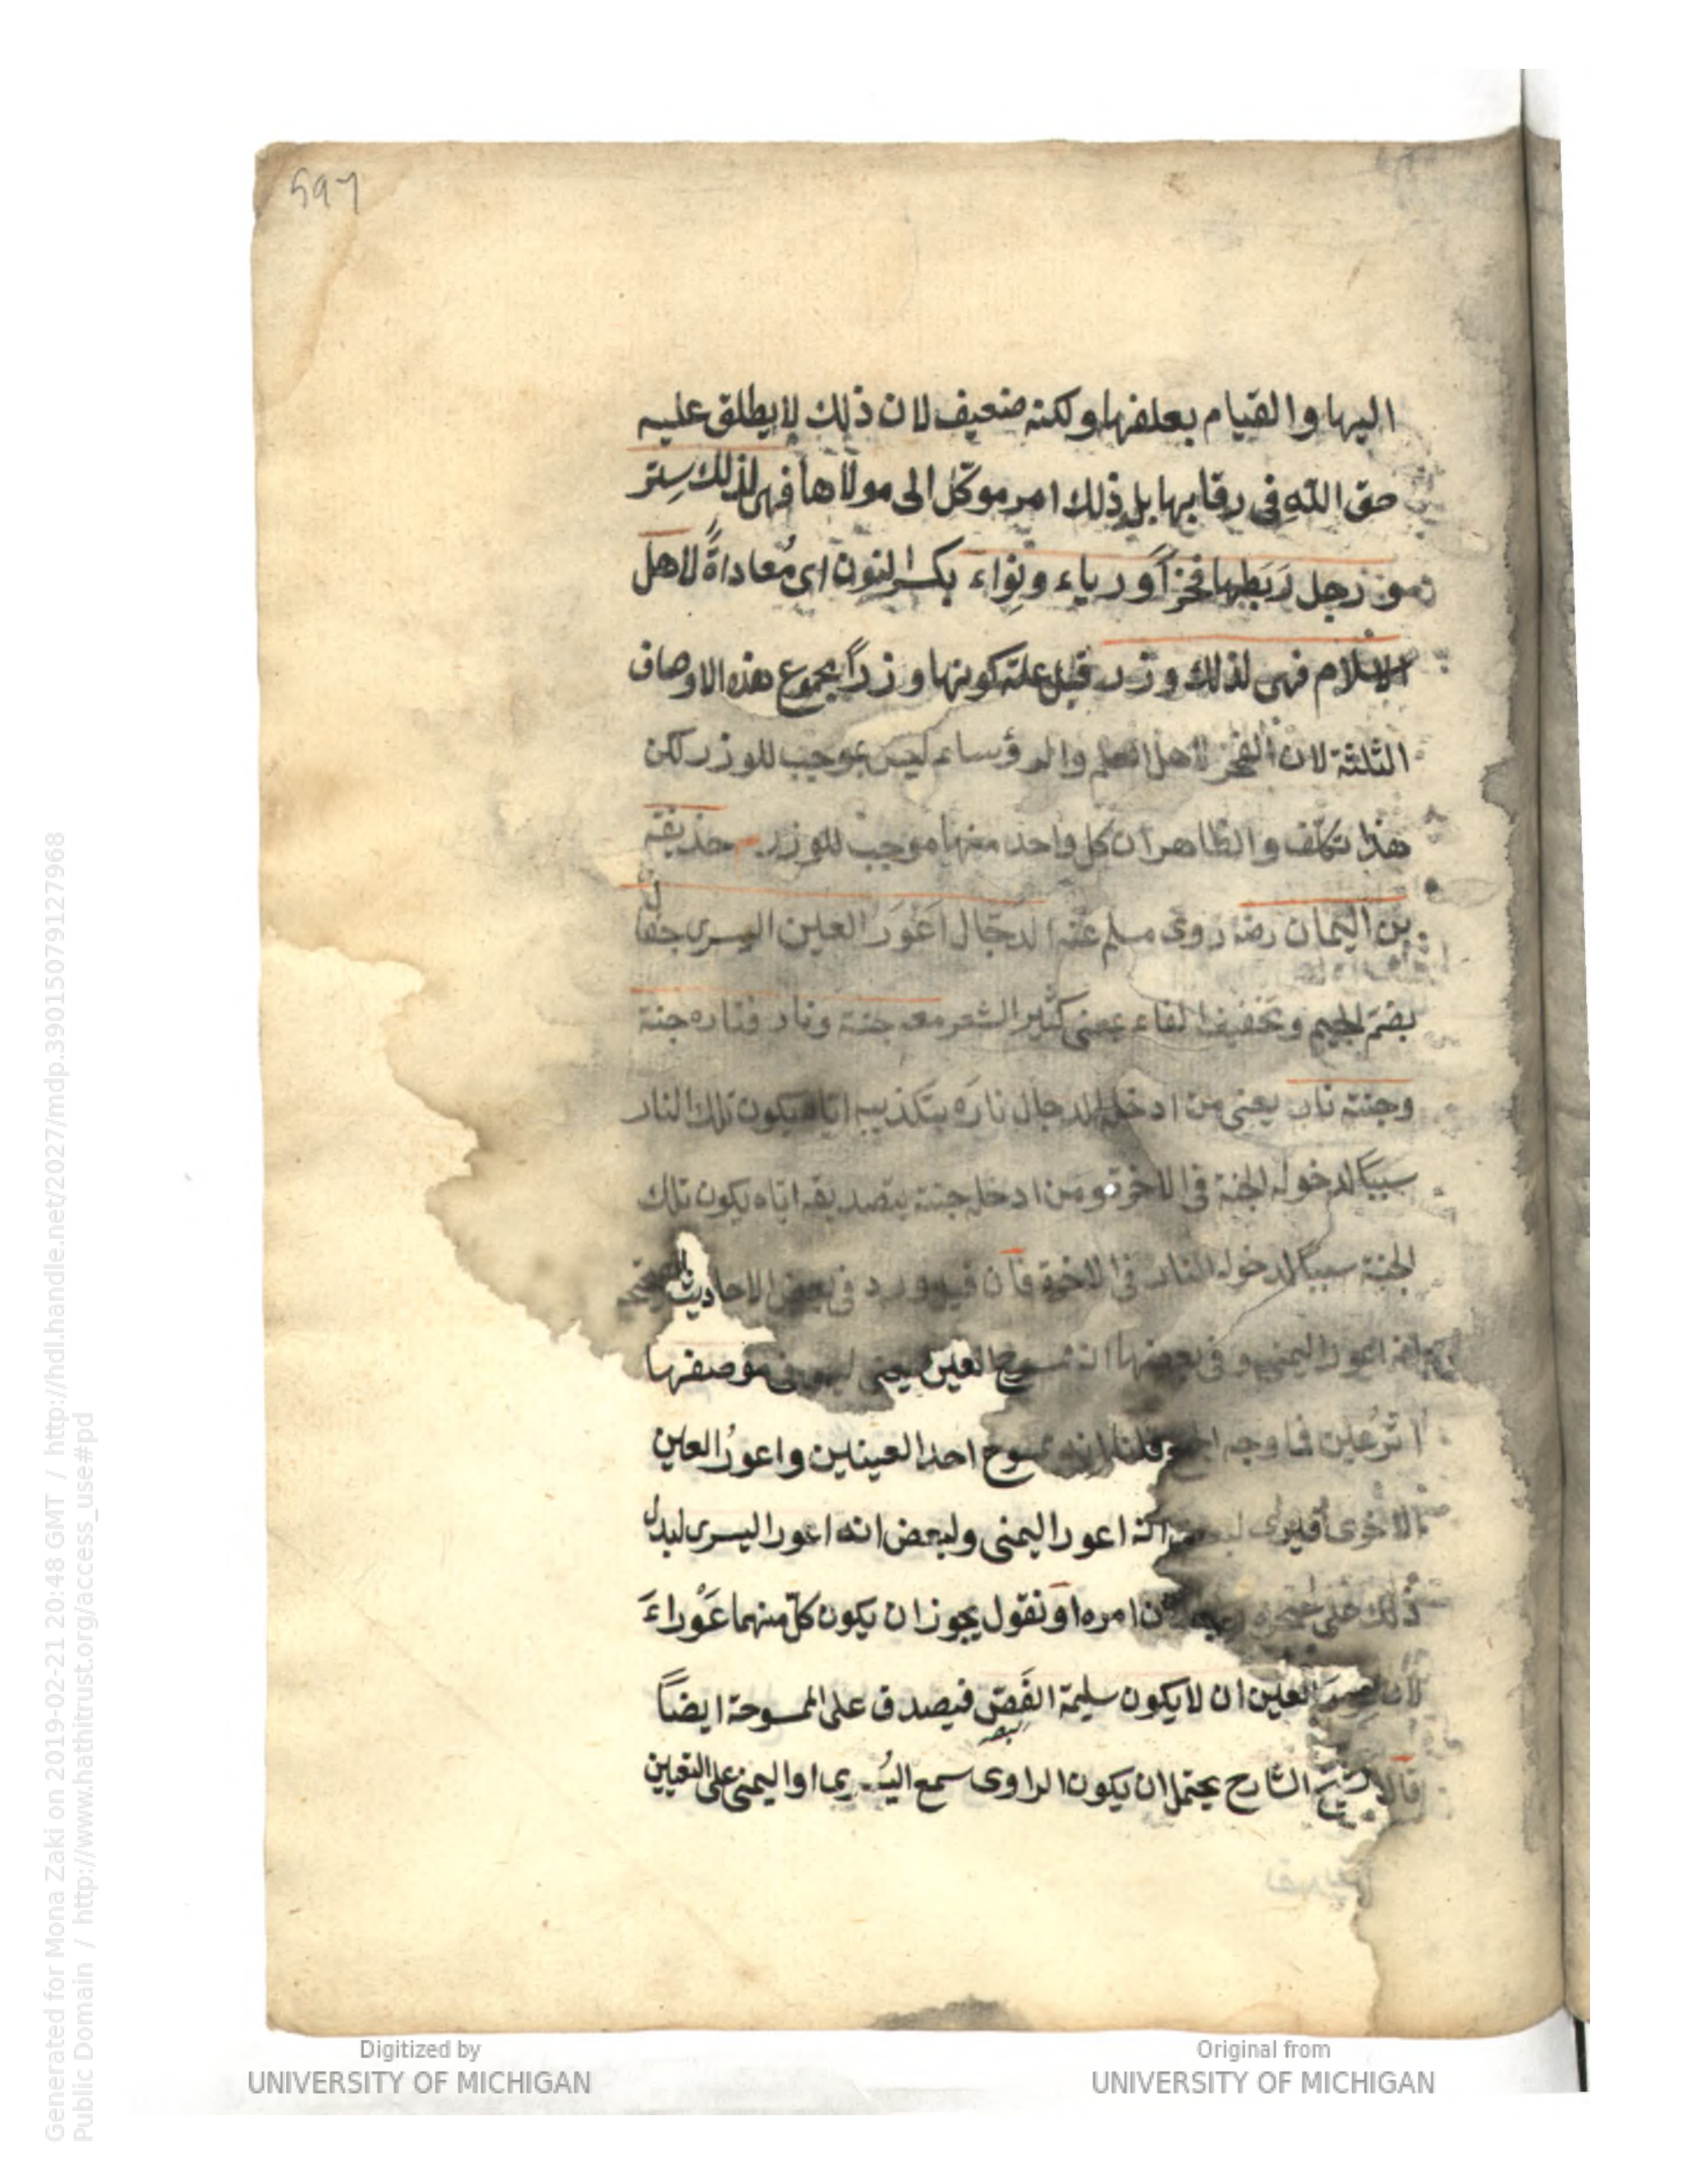 597
اليها والقيام بعلفها ولكنه ضعيف لان ذلك لا يطلق عليه
حق الله في رقابها بل ذلك امر موكّل الى مولاها فهي لذلك سِتر
ورجل رَبَطها فخراً ورياء ونِواء بكسر النون اى مُعاداةً لاهل
الاسلام فهى لذلك وزر قيل علة كونها وزراً مجموع هذه الاوصاف
الثلثة لان الفخر لاهل العلم والرؤساء ليس بموجب للوزر لكن
هذا تكلّف والظاهر ان كل واحد منها موجب للوزر حذيفة
بن اليمان رضه روى مسلم عنه الدجّال اَعْوَر العين اليسرى جفال
بضمّ الجيم وتخفيف الفاء بمعنى كثير الشعر معه جنة ونار فناره جنة
وجنته نار يعنى من ادخله الدجال نارَه بتكذيبه اياه يكون تلك النار
سبباً لدخوله الجنة في الاخرة ومن ادخله جنته بتصديقه اياه يكون تلك
الجنة سبباً لدخوله النار في الاخرة فان قيل ورد في بعض الاحاديث
انه اعور اليمنى وفي بعضها انه ممسوح العين يعنى ليس في موضعها
اثر عين فما وجه قلنا انه ممسوح احد العينين واعورُ العين
الاخرى فيرى انه اعور اليمنى ولبعض انه اعور اليسرى ليدل
ذلك على امره او نقول يجوز ان يكون كلّ منهما عَوْراءَ
لان العين ان لا يكون سليمة الفَصّ فيصدق على الممسوحة ايضاً
قال الشارح يحتمل ان يكون الراوى سمع اليُسرى او اليمنى على التعيين